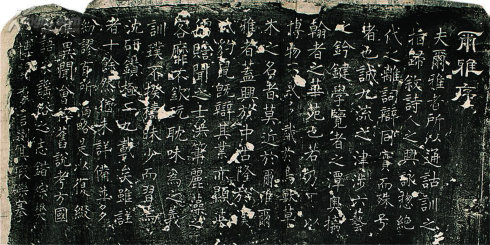 爾雅序
夫爾雅者所以通詁訓之
指歸敘詩人之興詠揔絕
代之離詞辯同實而殊號
者也誠九流之津涉六藝
之鈐鍵學覽者之潭奧摛
翰者之華苑也若乃可以
博物不惑多識於鳥獸草
木之名者莫近於爾雅爾
雅者蓋興於中古隆於漢
氏豹鼠既辯其業亦顯英
儒贍聞之士洪筆麗藻之
客靡不欽玩耽味為之義
訓璞不揆檮昧少而習焉
沈研鑽極二九載矣雖註
者十餘然猶未詳備並多
紛謬有所漏略是以復綴
異聞會稡舊說考方國
之語采謠俗之志錯綜樊
博關群言剟其瑕礫搴